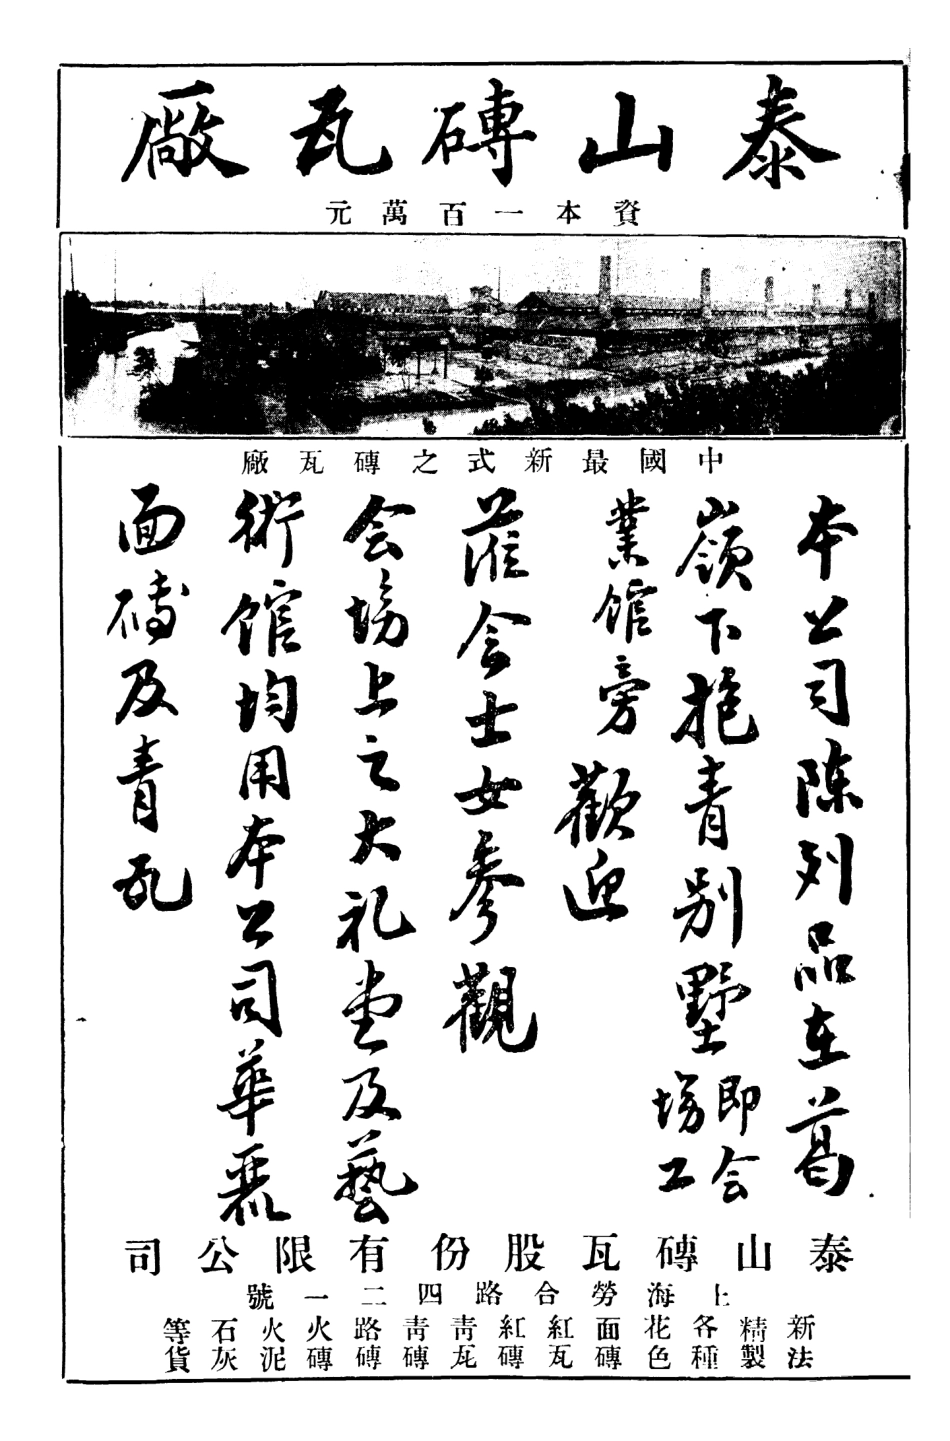 泰山磚瓦廠
資本一百萬元
中國最新式之磚瓦廠
本公司陳列品在葛
嶺下抱青别墅即会場工
業館旁歡迎
蒞会士女參觀
会塲上之大礼堂及藝
術館均用本公司華麗
面磚及青瓦
泰山磚瓦股份有限公司
上海勞合路四二一號
新法
精製
各種
花色
面磚
紅瓦
紅磚
靑瓦
靑磚
路磚
火磚
火泥
石灰
等貨